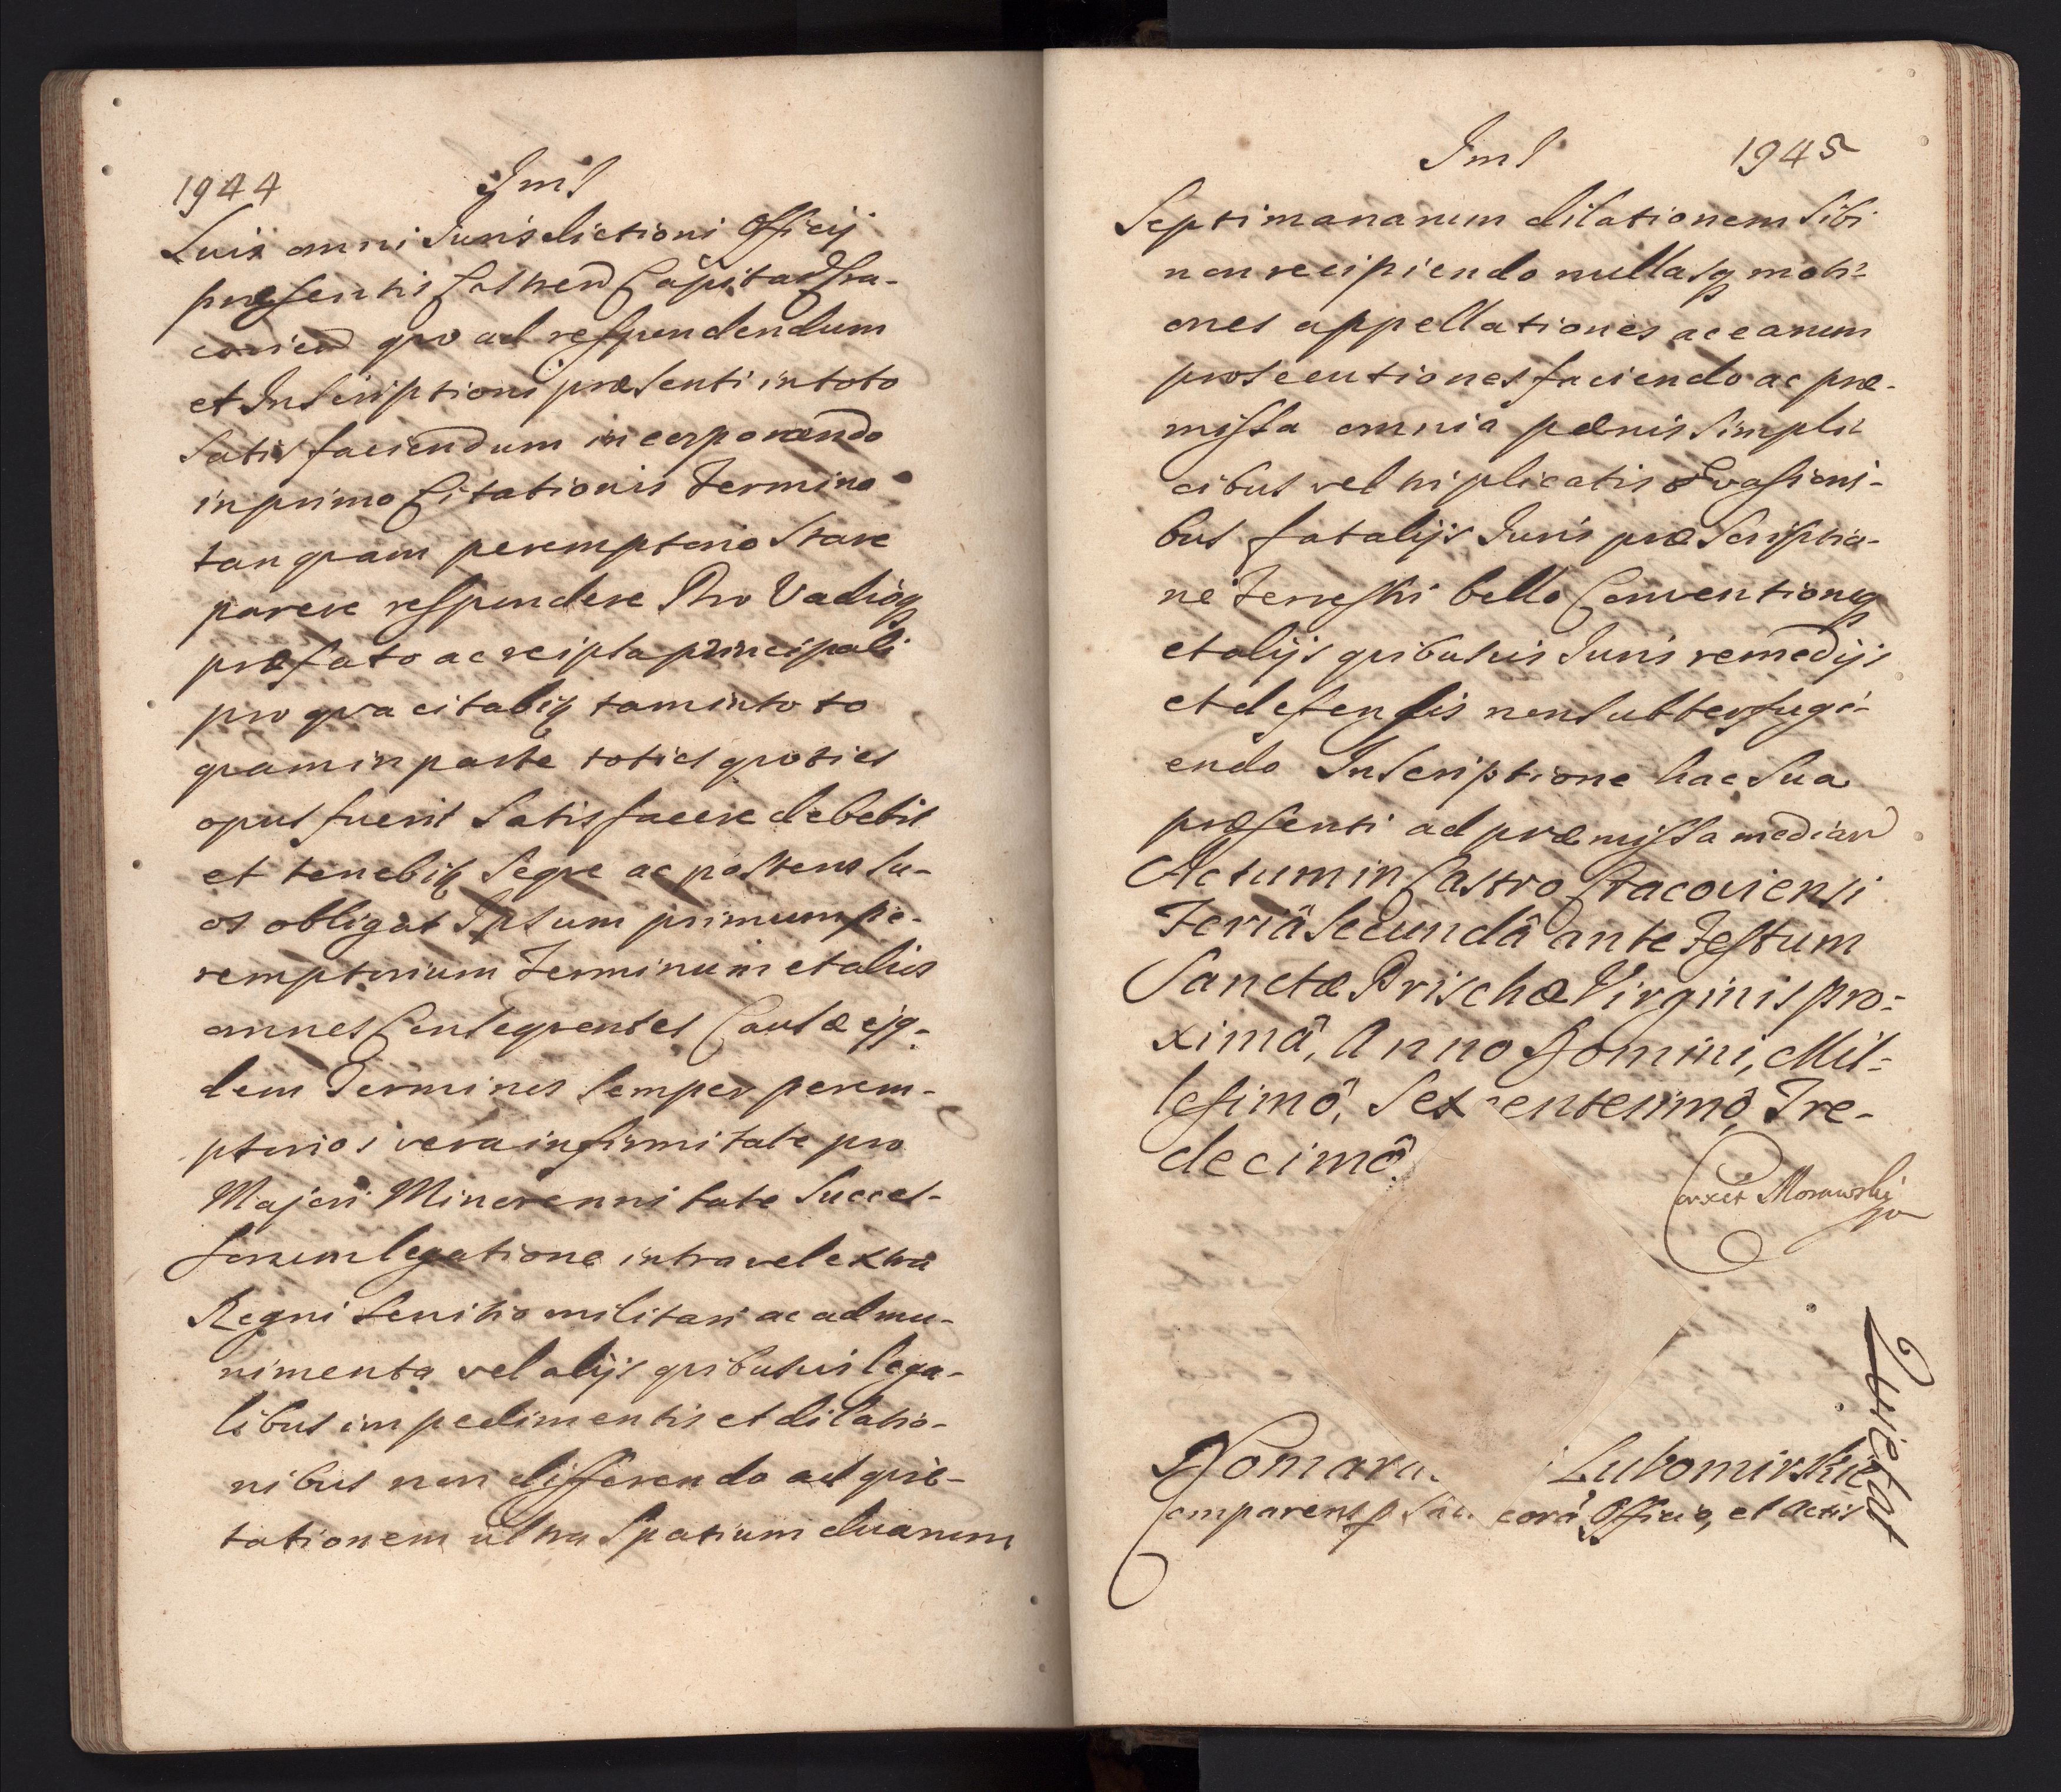 1944
Iml
Suis omni Jurisdictioni Officij
præsentis Castren Capitan Cra-
covien quo ad respondendum
et Inscriptioni præsenti in toto
Satisfaciendum incorporando
in primo Citationis Termino
tanquam peremptorio Stare
parere respondere Pro Vadioq
præfato ac re ipsa principali
pro qva citabiq tam in toto
qvam in parte toties qvoties
opus fuerit Satisfacere debebit
et tenebiq Seqve ac posteros Su-
os obligat Ipsum primum pe-
remptorium Terminum et alios
omnes Conseqventes Causæ ejq-
dem Terminos Semper perem-
ptorios vera infirmitate pro
Majori Minorennitate Succes-
sorum legatione intra vel extra
Regni Servitio militari ac ad mu-
nimenta vel alijs qvibusvis lega-
libus impedimentis et dilatio-
nibus non differendo ad qvie-
tationem ultra Spatium duarum
Iml
1945
Septimanarum dilationem Sibi
non recipiendo nullasq moti-
ones appellationes ac earum
prosecutiones faciendo ac præ-
missa omnia pænis Simpli-
cibus vel triplicatis Evasioni-
bus fatalijs Juris præscriptio-
ne Terrestri bello Conventioneq
et alijs qvibusvis Juris remedijs
et defensis non Subterfugi-
endo Inscriptione hac Sua
præsenti ad præmissa median
Actum in Castro Cracoviensi
Feriâ Secundâ ante Festum
Sanctæ Prischæ Virginis pro-
ximâ, Anno Domini, Mil-
lesimô, Sex entesimô, Tre-
decimô.
Corxit Morawski
Lubomirski
Comparens corã Officio, et Actis
Quietat